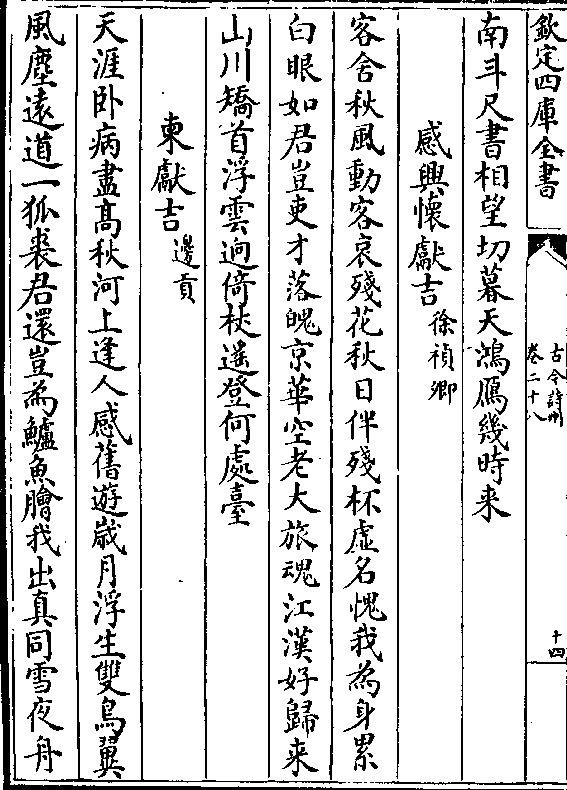 欽定四庫全書
古今詩刪
卷二十八
十四
南斗尺書相望切暮天鴻鴈幾時来
感興懷獻吉徐禎卿
客舍秋風動客哀殘花秋日伴殘杯虛名愧我為身累
白眼如君豈吏才落魄京華空老大旅魂江漢好歸来
山川矯首浮雲逈倚杖遥登何處臺
柬獻吉邊貢
天涯卧病盡髙秋河上逢人感舊遊嵗月浮生雙鳥翼
風塵逺道一狐裘君還豈為鱸魚膾我出真同雪夜舟